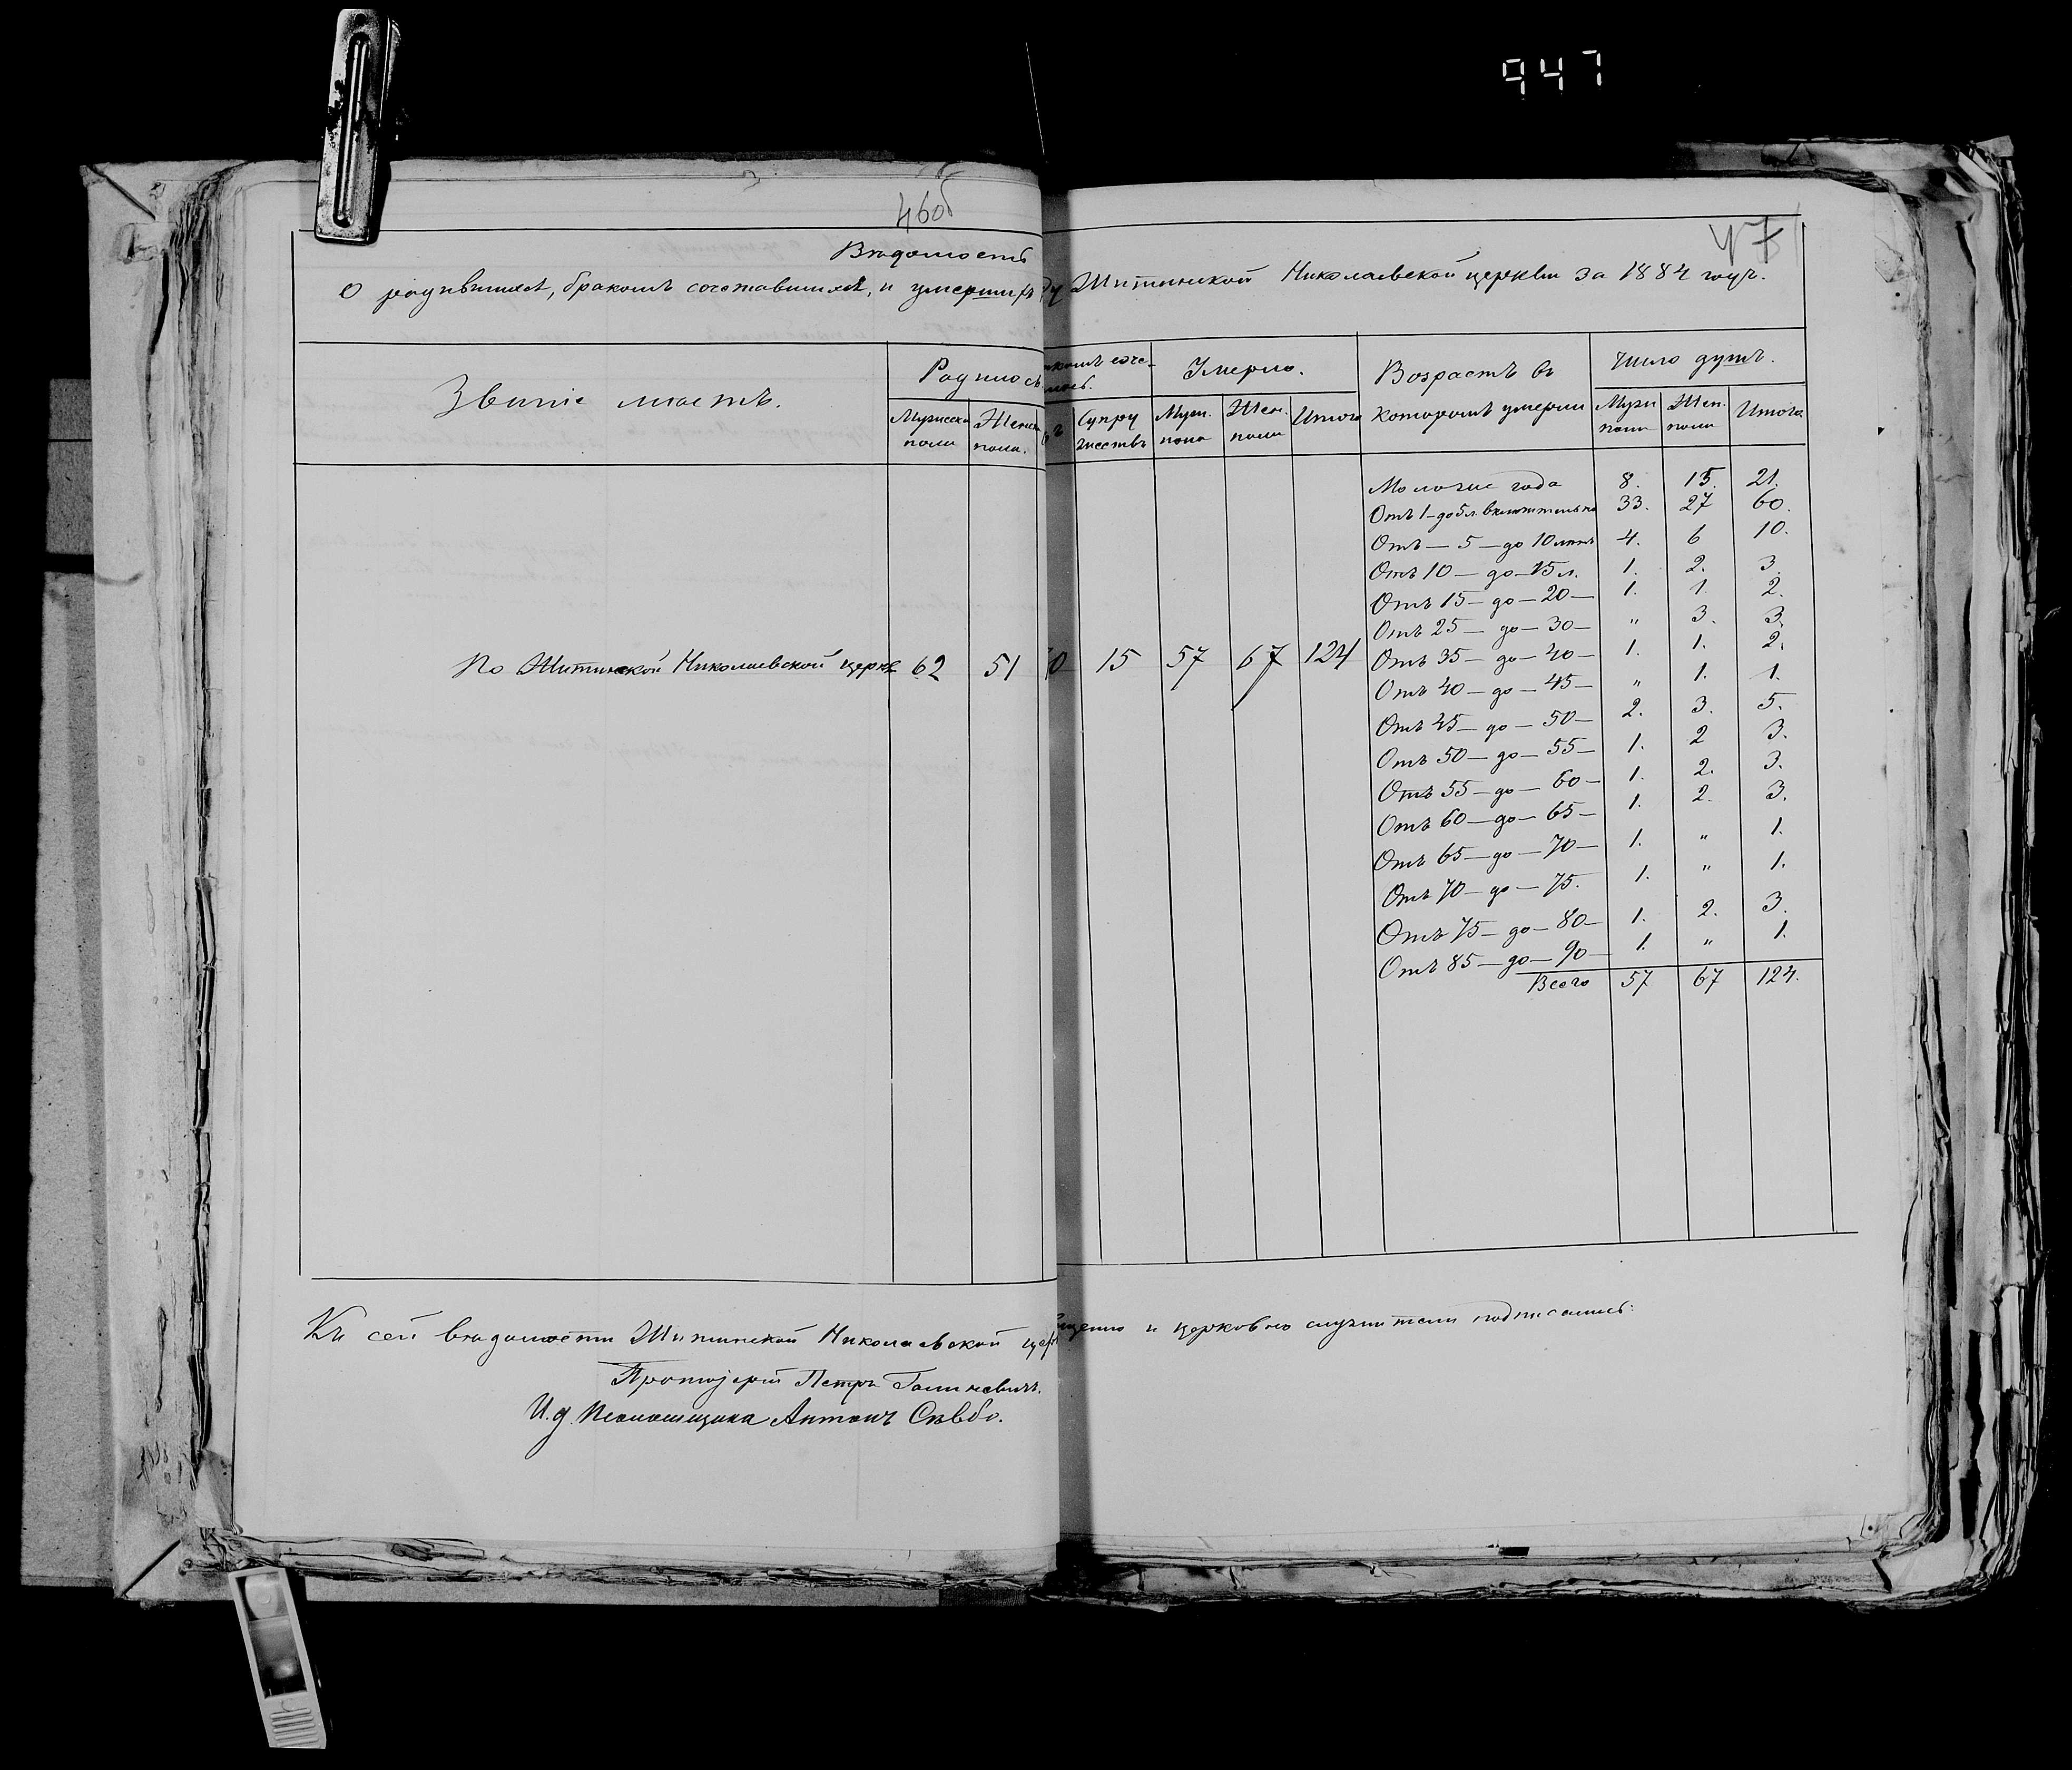 947
46об
47
Вѣдомость
О родившихся, бракомъ сочетавшихся, и умершихъ Житинской Николаевской церкви за 1884 годъ.
Званіе мѣстъ.
Родилось
Умерло.
Возрастъ въ которомъ умерли
Число душъ.
Мужеска пола
Женска пола.
Супру жествъ
Муж. пола
Жен. пола
Итого
Муж пола
Жен. пола
Итого
По Житинской Николаевской церкв 62 51 15 57 67 124
Моложе года 8. 13. 21.
Отъ 1—до 5 л. включительно 33. 27 60.
Отъ — 5 — до 10 лѣтъ 4. 6 10.
Отъ 10 — до — 15 л. 1. 2. 3.
Отъ 15 — до — 20 — 1. 1. 2.
Отъ 25 — до — 30 — " 3. 3.
Отъ 35 — до — 40 — 1. 1. 2.
Отъ 40 — до — 45 — " 1. 1.
Отъ 45 — до — 50 — 2. 3. 5.
Отъ 50 — до — 55 — 1. 2 3.
Отъ 55 — до — 60 — 1. 2. 3.
Отъ 60 — до — 65 — 1. 2. 3.
Отъ 65 — до — 70 — 1. " 1.
Отъ 70 — до — 75. 1. " 1.
Отъ 75 — до — 80 — 1. 2. 3.
Отъ 85 — до — 90 — 1. " 1.
Всего 57 67 124.
Къ сей вѣдомости Житинской Николаевской и церковно служители подписались:
Протоіерей Петръ
И.д. Псаломщика Антонъ